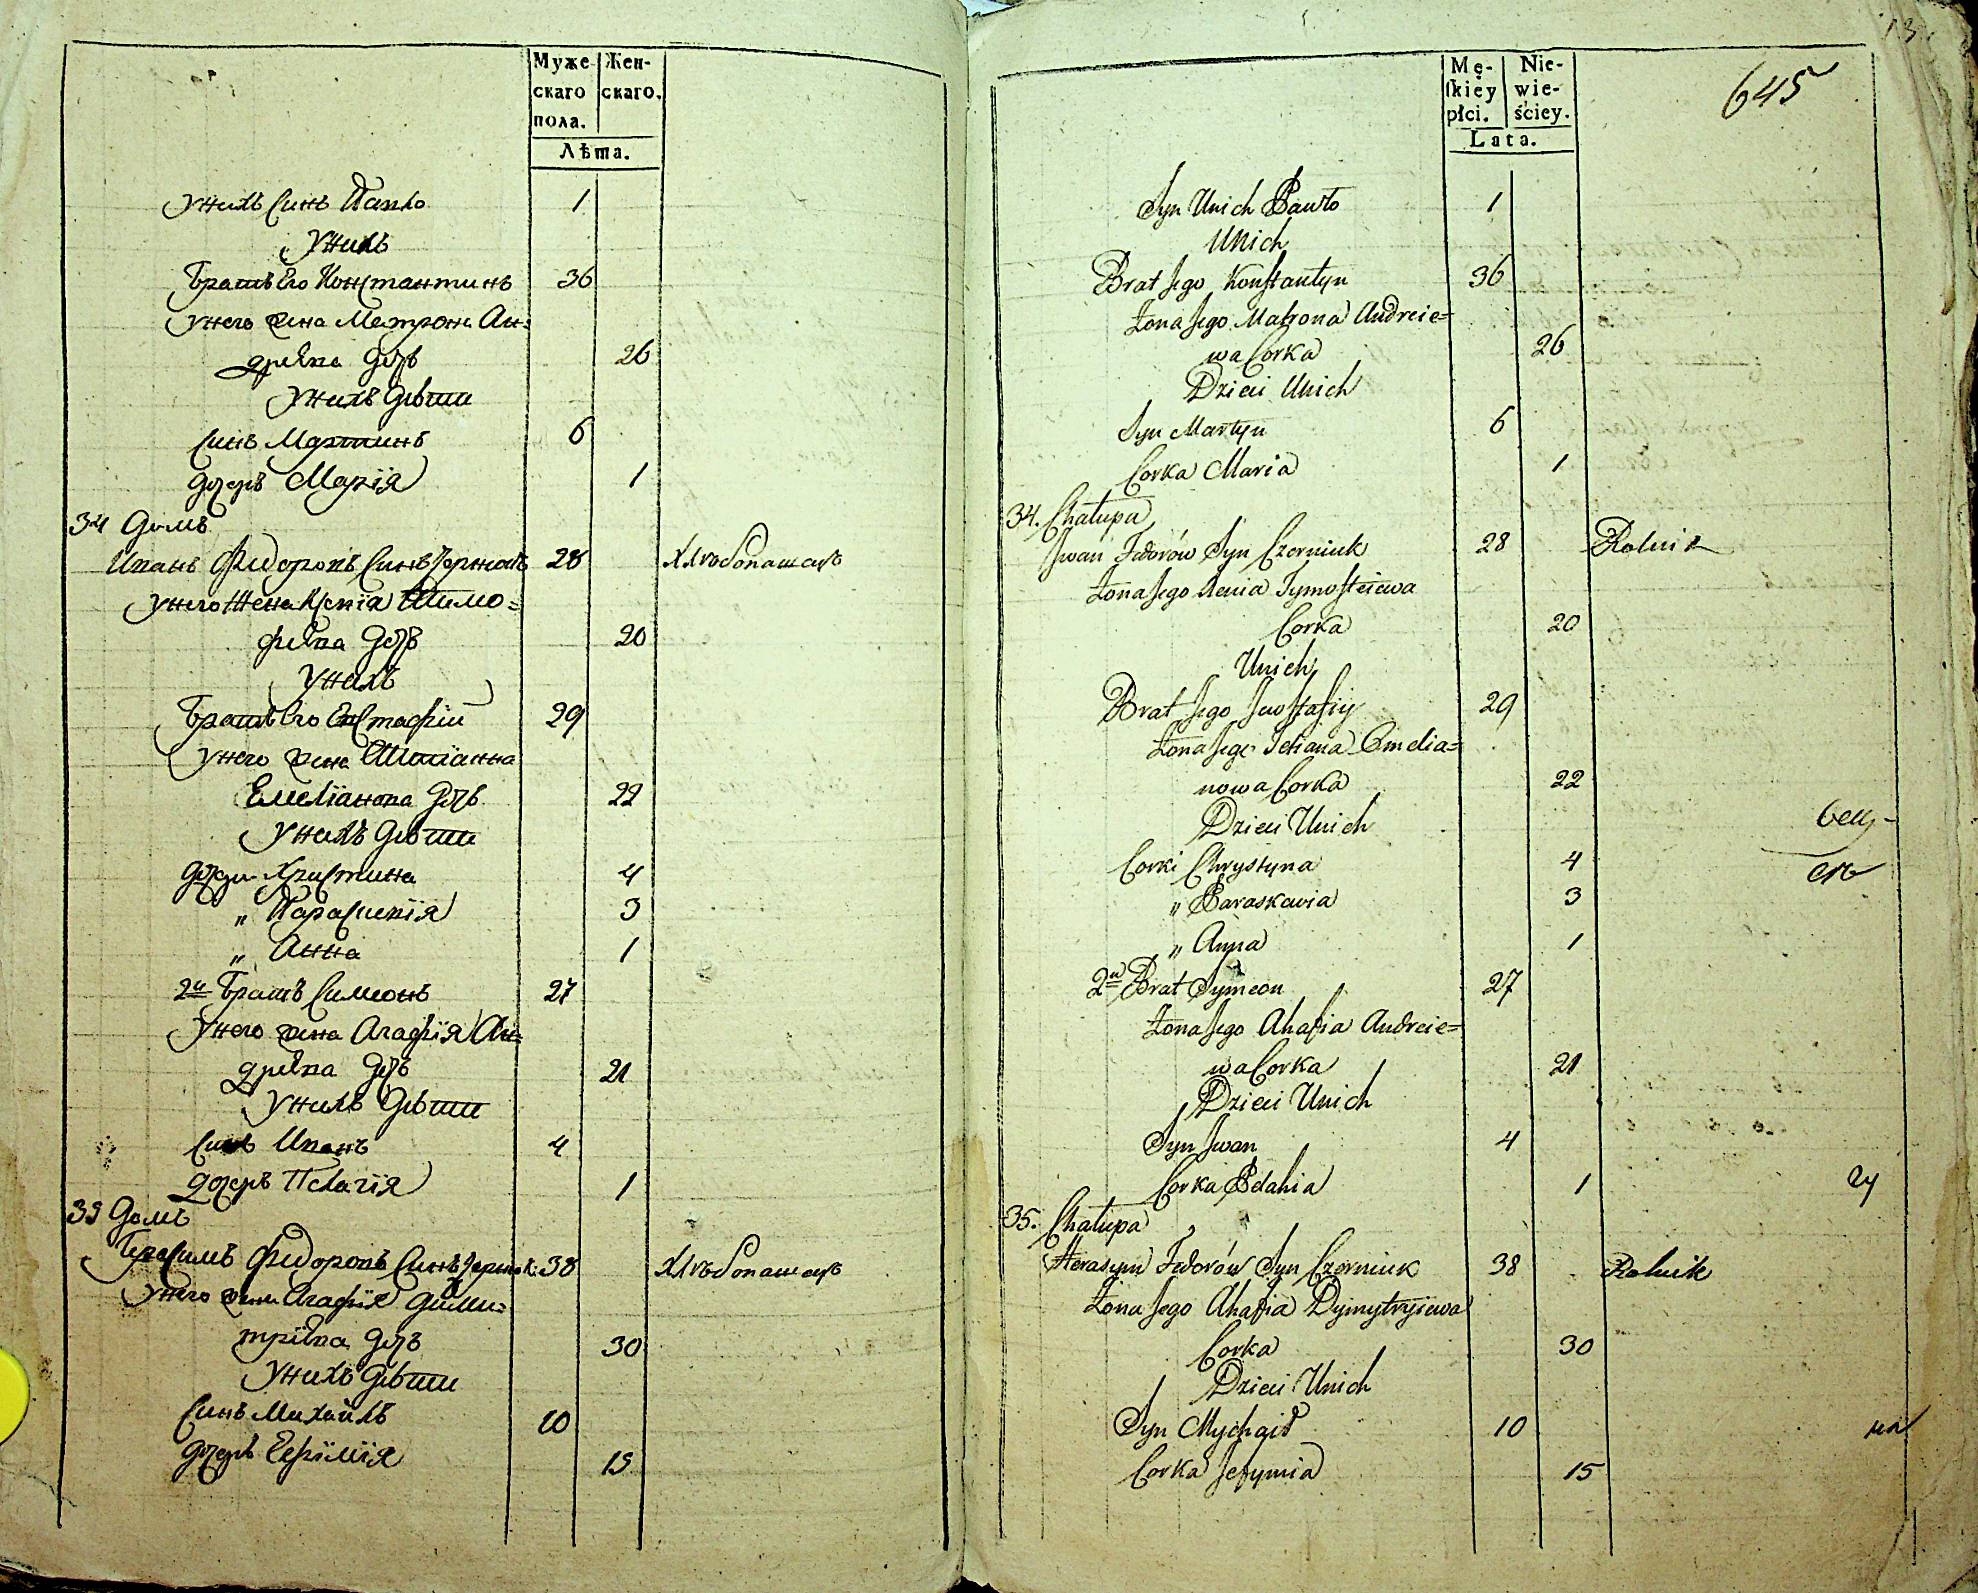 Муже
скаго
пола.
Жен-
скаго.
Лѣта.
Унихъ Синъ Павло 1
Унихъ
Братъ Его Константинъ 36
Унего жена Матрона Ан=
дрѣева дочь 26
Унихъ Дѣти
Синъ Мартинъ 6
дочерь Марія 1
34 Домъ
Иванъ Федоровъ Синъ Чернюкъ 28 Хлѣбопашецъ
Унего Жена Ксенія Тимо=
фѣева дочь 20
Унихъ
Братъ Его Евстафій 29
Унего жена Татіанна
Емеліанова дочь 22
Унихъ Дѣти
дочери Христина 4
„ Параскевія 3
„ Анна 1
2й Братъ Симеонъ 27
Унего жена Агафія Ан=
дрѣева дочь 21
Унихъ Дѣти
Синъ Иванъ 4
дочерь Пелагія 1
35 Домъ
Герасимъ Федоровъ Синъ Чернюк: 38 Хлѣбопашецъ
Унего жена Агафія Дими=
тріева дочь 30
Унихъ Дѣти
Синъ Михайлъ 10
дочерь Евфимія 15
13
645
Mę-
skiéy
płci.
Nie-
wie-
ściey.
Lata.
Syn Unich Pawło 1
Unich
Brat Jego Konstantyn 36
Żona Jego Matrona Andreie=
wa Corka 26
Dzieci Unich
Syn Martyn 6
Corka Maria 1
34. Chałupa
Jwan Fedorów Syn Czerniuk 28 Rolnik
Żona Jego Xenia Tymofteiewa
Corka 20
Unich
Brat Jego Jewstafiy 29
Żona Jego Tetiana Emelia=
nowa Corka 22
Dzieci Unich
Corki Chrystyna 4
„ Paraskawia 3
„ Anna 1
2й Brat Symeon 27
Żona Jego Ahafia Andreie=
wa Corka 21
Dzieci Unich
Syn Jwan 4
Corka Pelahia 1
35. Chałupa
Herasym Fedorów Syn Czerniuk 38 Rolnik
Żona Jego Ahafia Dymytryiewa
Corka 30
Dzieci Unich
Syn Mychaił 10
Corka Jefymia 15